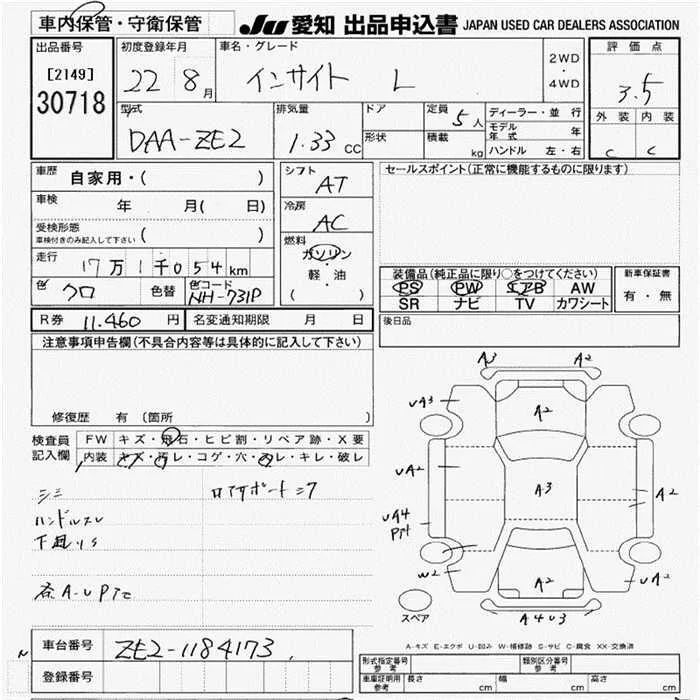 車内保管・守衛保管
JU 愛知 出品申込書 JAPAN USED CAR DEALERS ASSOCIATION
出品番号
[2149]
30718
初度登録年月
22 8月
車名・グレード
インサイト L
2WD
・
4WD
評価点
3.5
外装 内装
C C
型式
DAA-ZE2
排気量
1.33 CC
ドア
形状
定員 5人
積載 kg
ディーラー・並行
モデル年式 年
ハンドル 左・右
車歴
自家用・( )
車検
年 月( 日)
受検形態
車検付きのみ記入して下さい ( )
走行
17万1千054km
色 クロ 色替 色コード NH-731P
シフト
AT
冷房
AC
燃料
ガソリン
・
軽・油
( )
セールスポイント(正常に機能するものに限ります)
装備品(純正品に限り○をつけてください)
PS PW エアB AW
SR ナビ TV カワシート
新車保証書
有・無
R券 11.460 円 名変通知期限 月 日
後日品
注意事項申告欄(不具合内容等は具体的に記入して下さい)
修復歴 有 (箇所 )
検査員
記入欄
FW キズ・飛石・ヒビ割・リペア跡・X要
内装 キズ・汚レ・コゲ・穴・ヌレ・キレ・破レ
シミ
ハンドルスレ
A3 A2
UA3
A2
UA2
A3
A2
UA4
W2
A2
UA2
A4U3
スペア
A-キズ E-エクボ U-凹み W-補修跡 S-サビ C-腐食 XX-交換済
車台番号 ZE2-1184173
登録番号
形式指定番号 参考
類別区分番号 参考
車庫証明用 参考 長さ cm 幅 cm 高さ cm